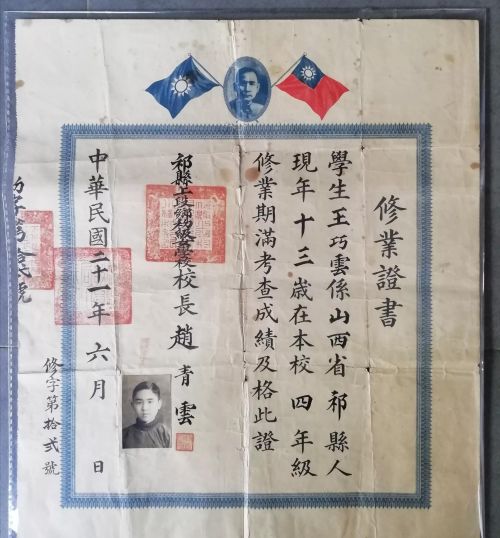 修業證書
學生王巧雲係山西省祁縣人
現年十三歲在本校四年級
修業期滿考查成績及格此證
祁縣校長趙青雲
中華民國二十一年六月 日
修字第拾貳號
字第號